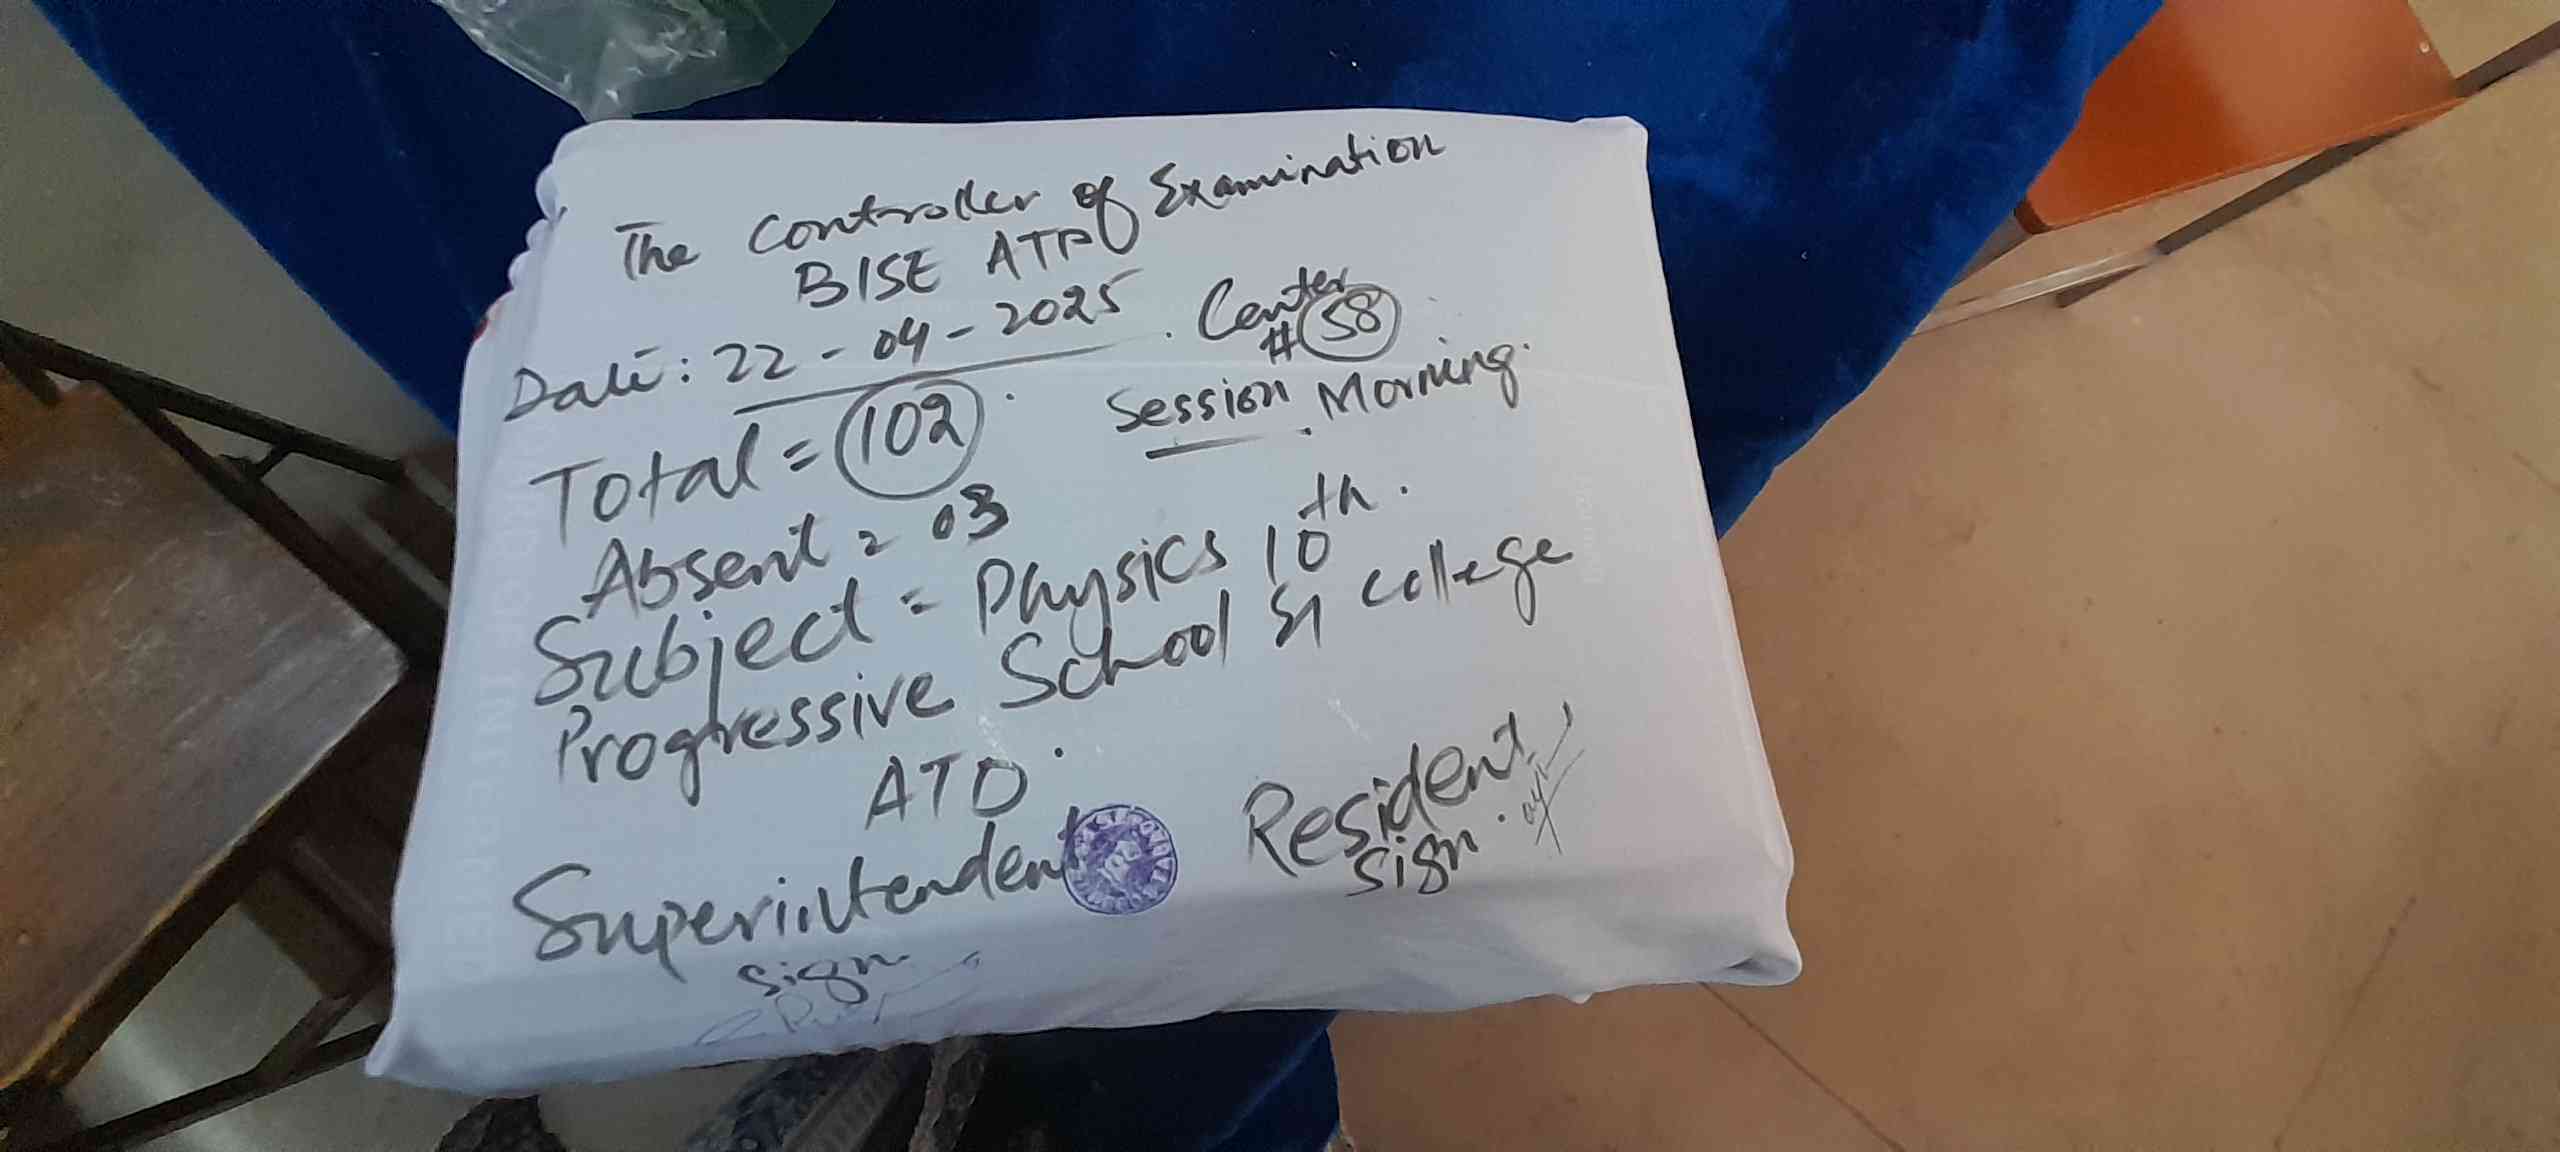 The Controller of Examination
BISE ATD
Date: 22-04-2025. Center # 58
Total = 102. Session. Morning.
Absent = 03
Subject = Physics 10th.
Progressive School & college
ATD.
Superintendent Resident
sign sign.